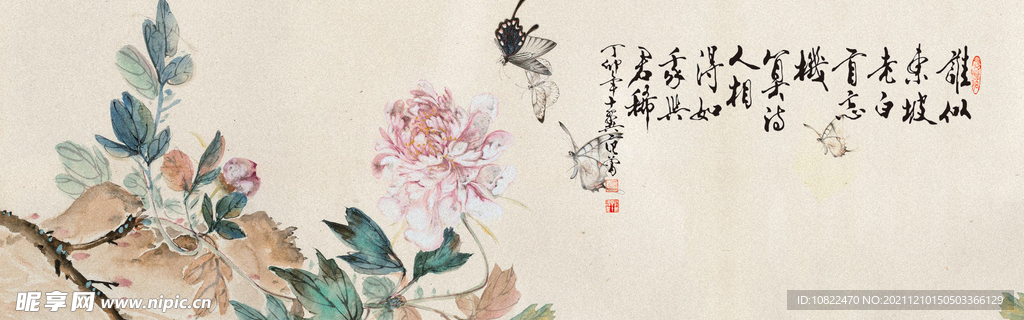 誰似
東坡
老白
首忘
機
算詩
人相
得如
我與
君稀
昵享网 www.nipic.cn
ID:10822470 NO:20211210150503366129